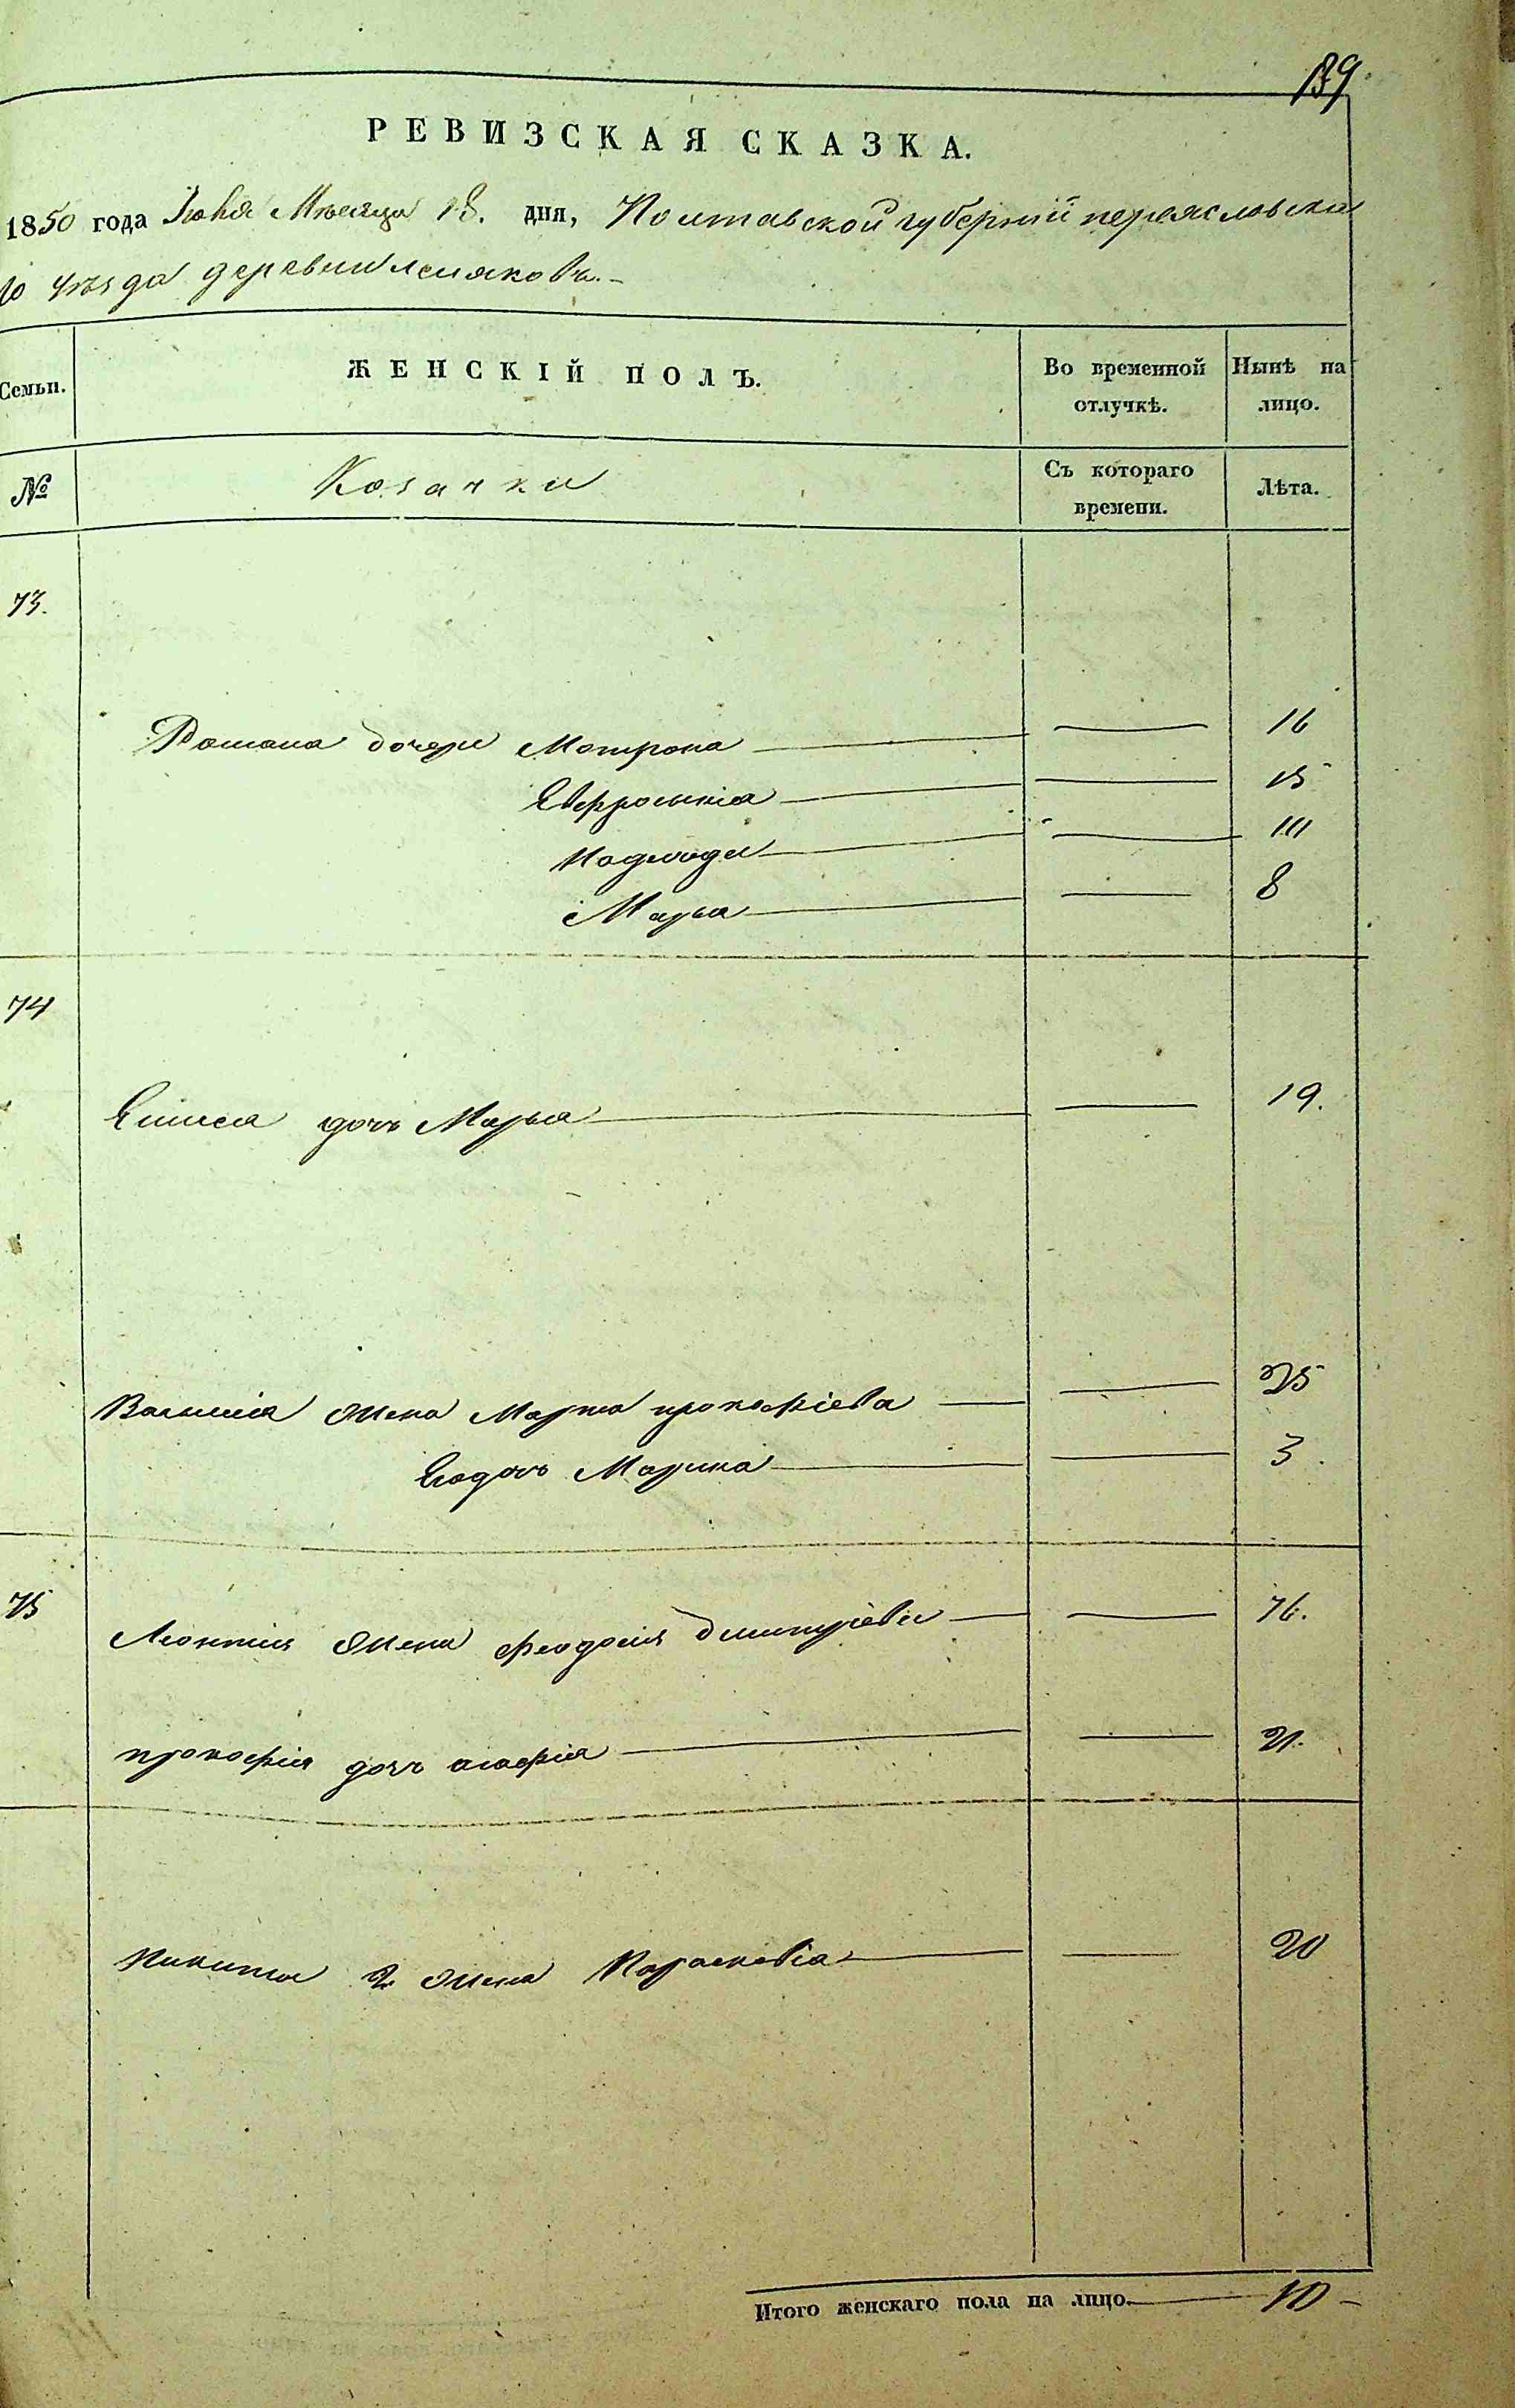 139
РЕВИЗСКАЯ СКАЗКА.
1850 года Июня Мѣсяца 18. дня, Полтавской губерніи переясловска
го уѣзда деревни лемяковъ.
Семьи. ЖЕНСКІЙ ПОЛЪ. Во временной отлучкѣ. Нынѣ на лицо.
№ Козачки Съ котораго времени. Лѣта.
73.
Романа дочери Мотрона — — 16
Евфросинія — — 15
— —
Марья — — 8
74
дочь Марья — — 19.
Василія жена Марта прокофіева — — 25
Еядочь Марина — — 3.
75 Леонтія жена феодосія дмитріева — — 76.
прокофія дочь агафія — — 21.
Никиты 2 жена Параскевіа — — 20
Итого женскаго пола на лицо. — 10 —